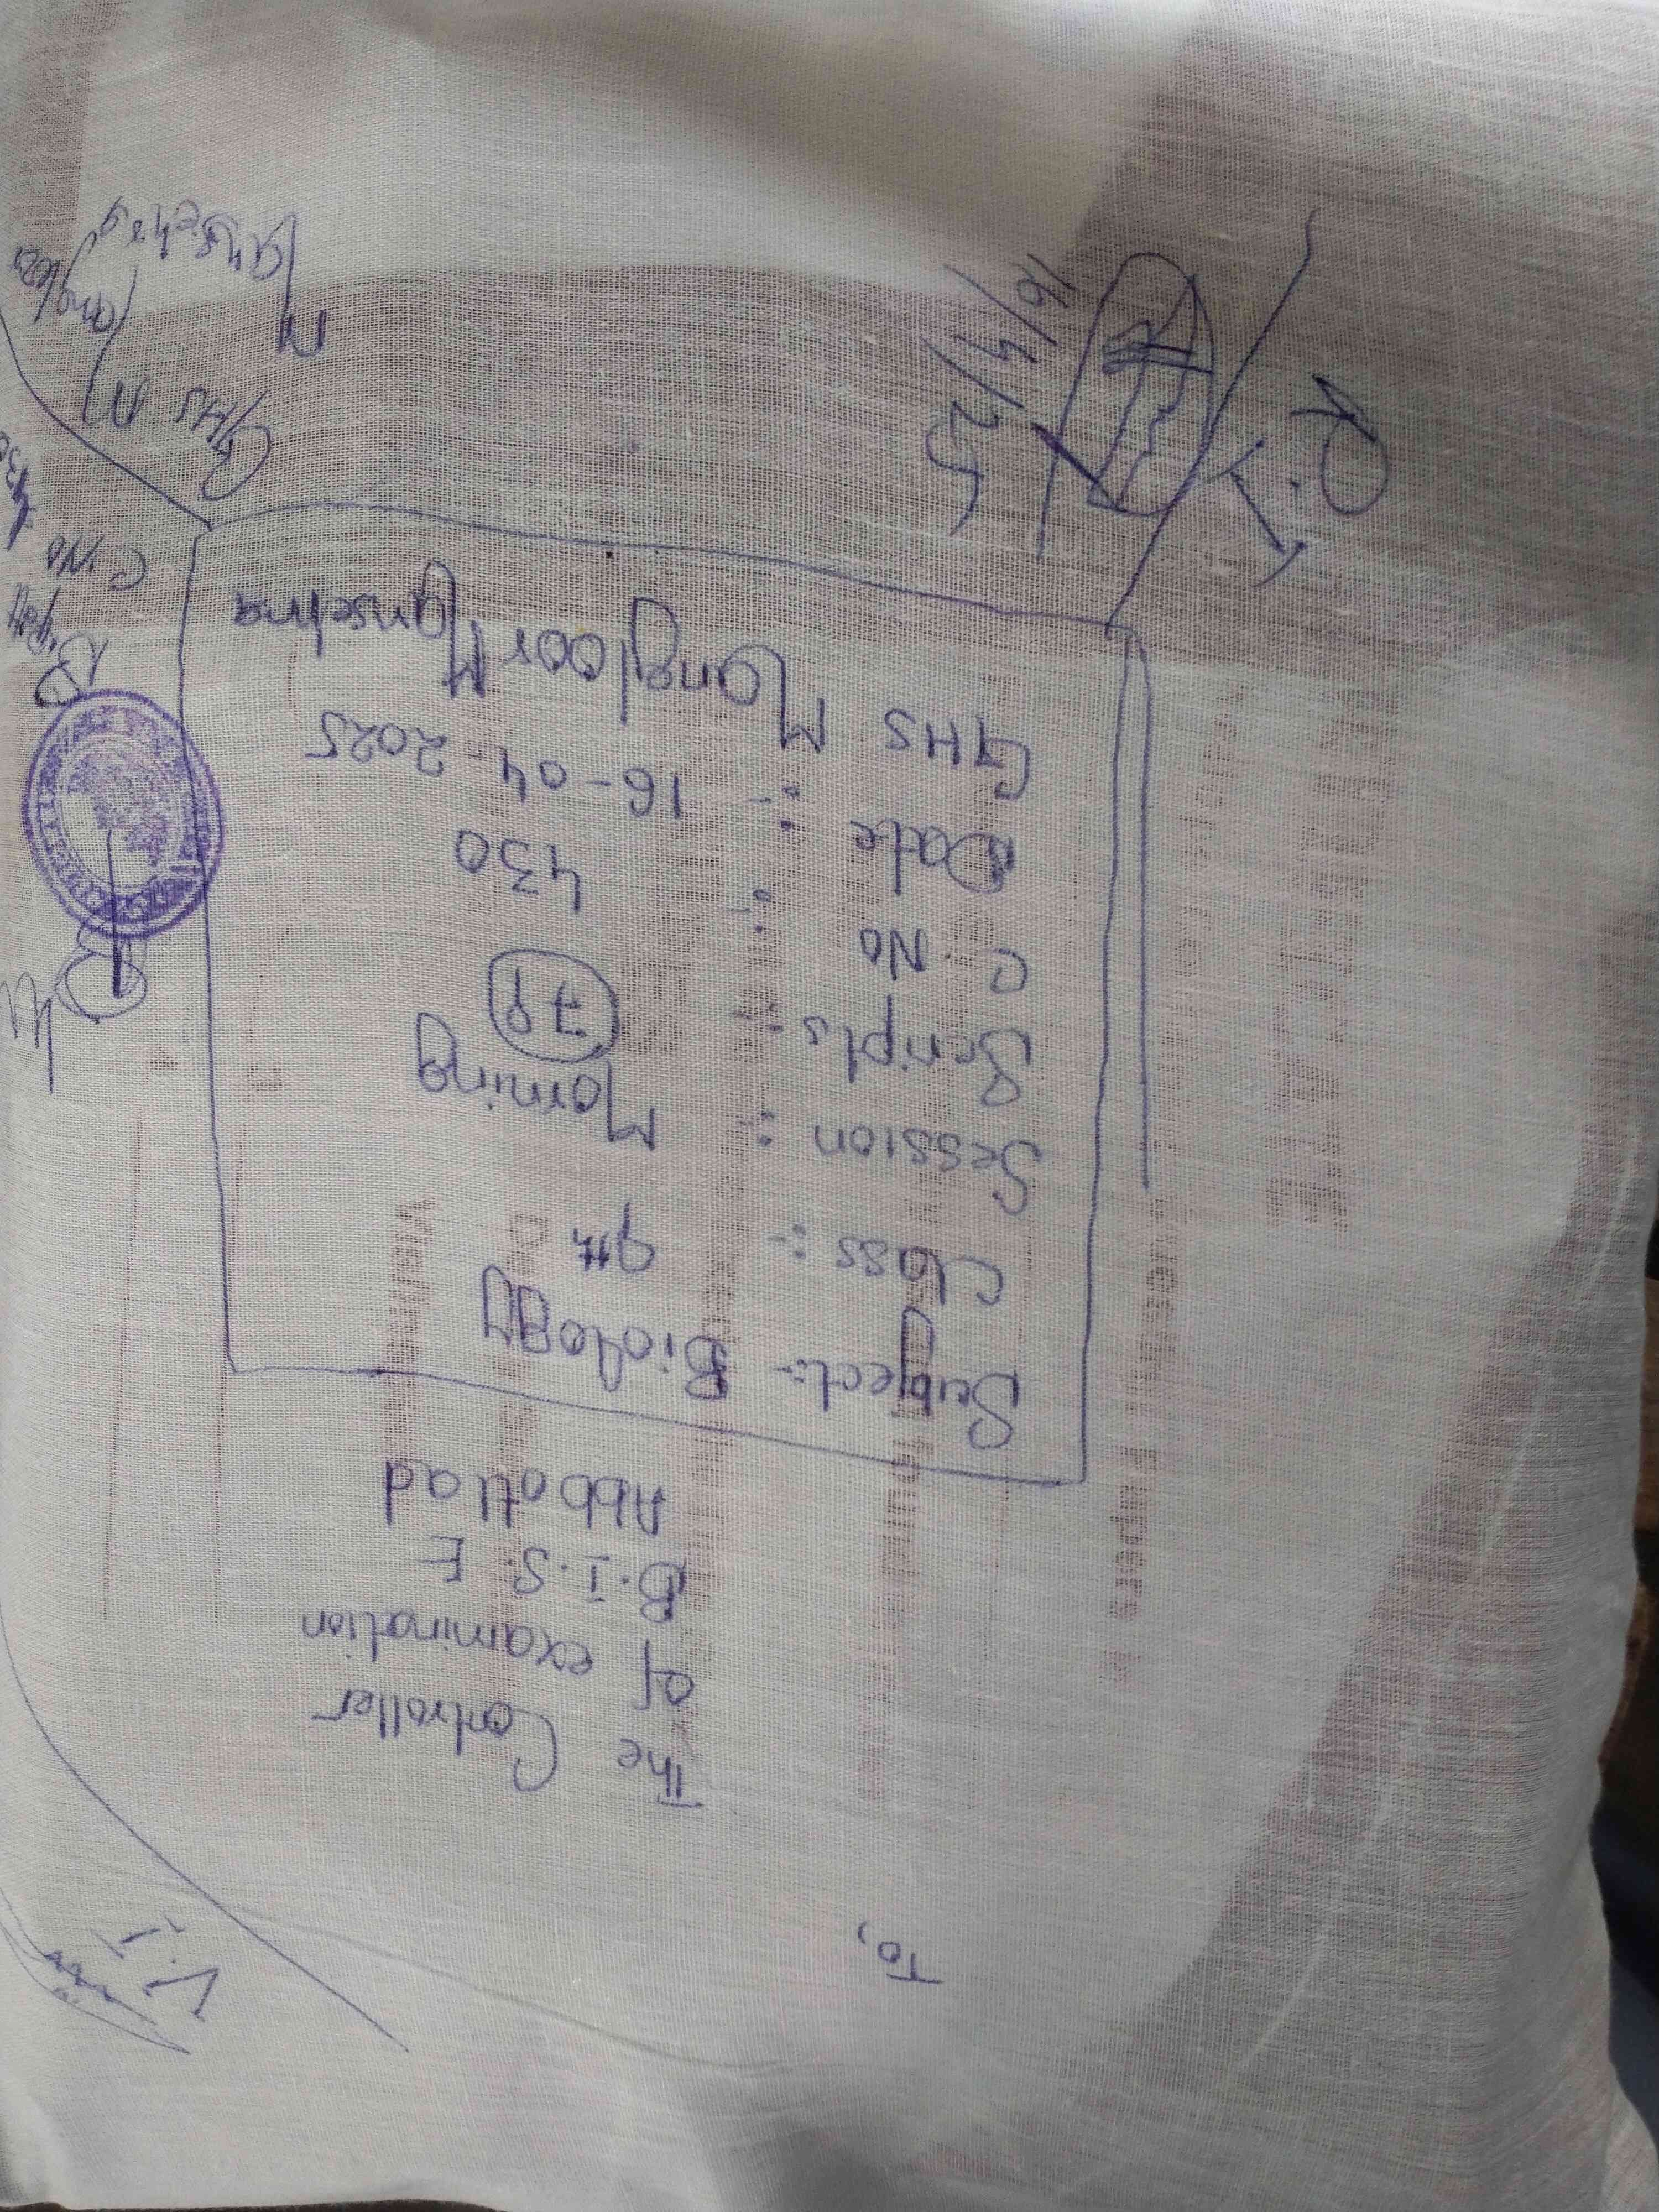 To,
The Controller
of examination
B.I.S.E
Abbottad
Subject:- Biology
Class :- 9th
Session :- Morning
Scripts :- 79
C.No :- 430
Date :- 16-04-2025
GHS Mangloor Mansehra
R.I
16/4/25
V.I
C.No
GHS
Mansehra